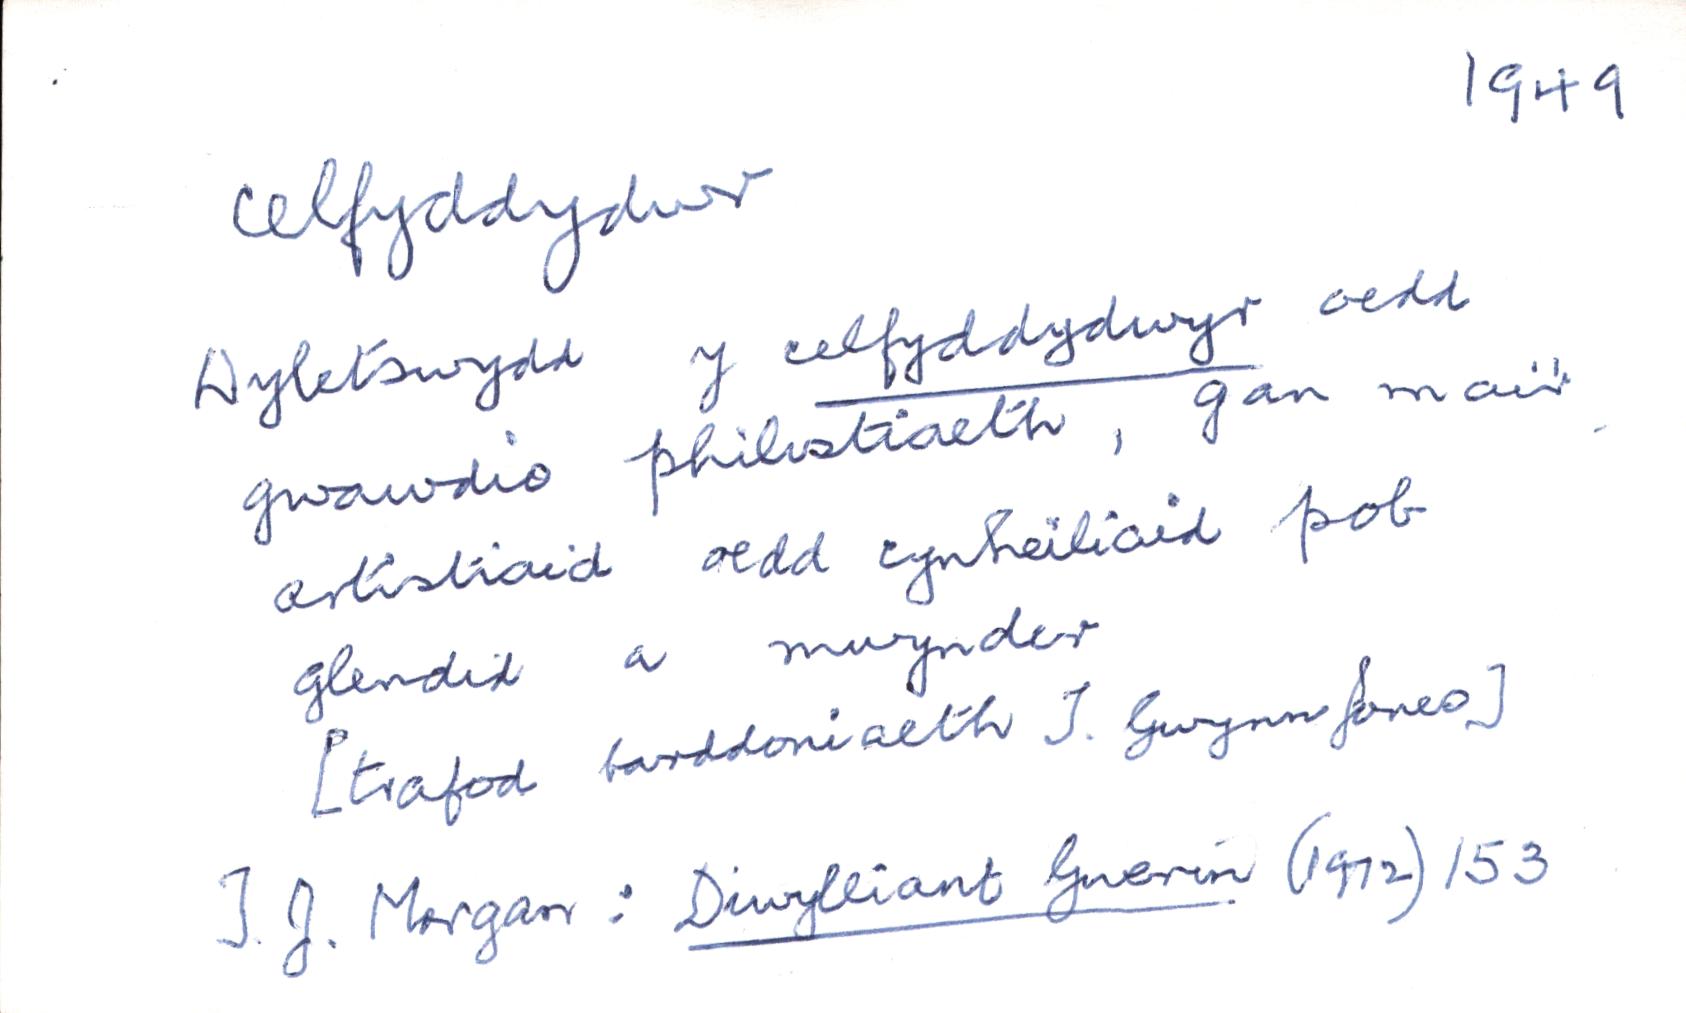 1949
celfyddydwr
Dyletswydd y celfyddydwyr oedd
gwawdio philistiaeth, gan mai'r
artistiaid oedd cynheiliaid pob
glendid a mwynder
[trafod barddoniaeth T. Gwynn Jones]
T. J. Morgan: Diwylliant Gwerin (1972) 153